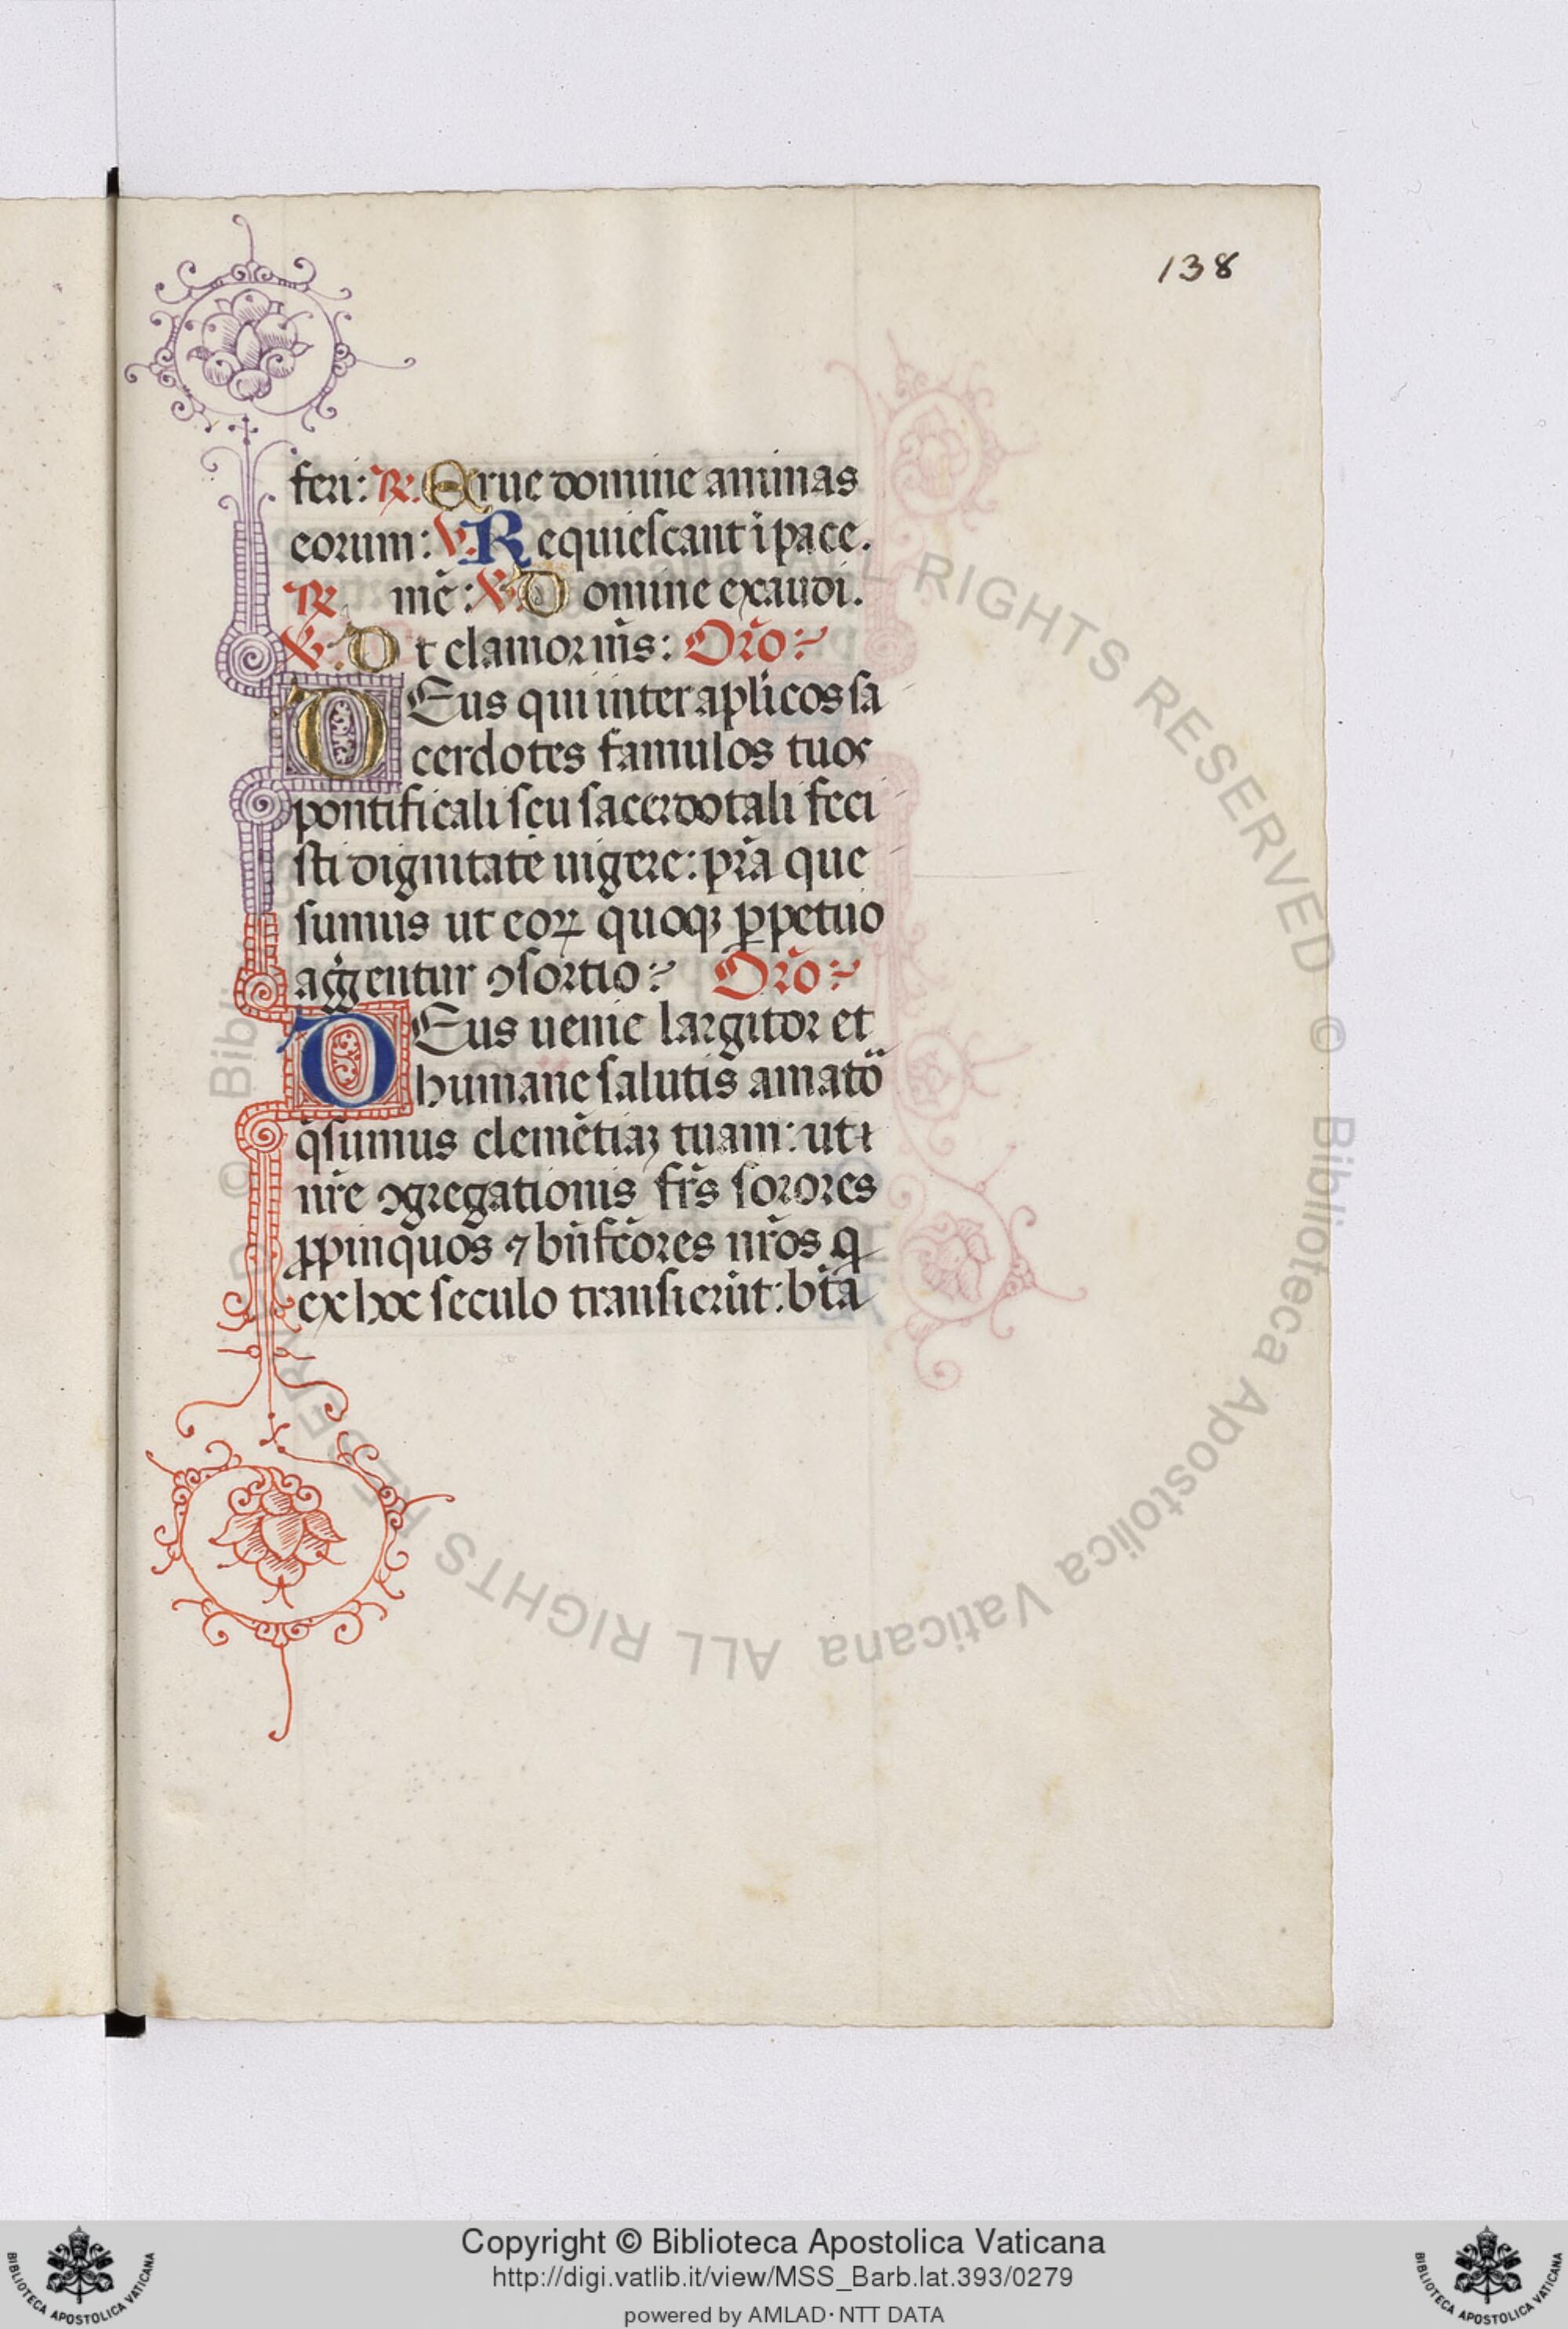 138
feri: ℟. Erue domine animas
eorum: ℣. Requiescant ī pace.
℟. mē: ℣. Domine exaudi.
℣. Et clamor m̄s: Oro̅:
DEus qui inter ap̄licos sa
cerdotes famulos tuos
pontificali seu sacerdotali feci
sti dignitate uigere: pr̄a que
sumus ut eoꝝ quoqꝫ ꝑpetuo
aggentur ꝯsortio: Oro̅:
DEus uenie largitor et
humane salutis amato
q̄sumus clemētiaꝫ tuam: ut
nr̄e ꝯgregationis fr̄s sorores
ꝓpinquos ⁊ bn̄fc̄ores nr̄os q
ex hoc seculo transierūt: bt̄a
© Biblioteca Apostolica Vaticana ALL RIGHTS RESERVED
Copyright © Biblioteca Apostolica Vaticana
http://digi.vatlib.it/view/MSS_Barb.lat.393/0279
powered by AMLAD·NTT DATA
BIBLIOTECA APOSTOLICA VATICANA
BIBLIOTECA APOSTOLICA VATICANA